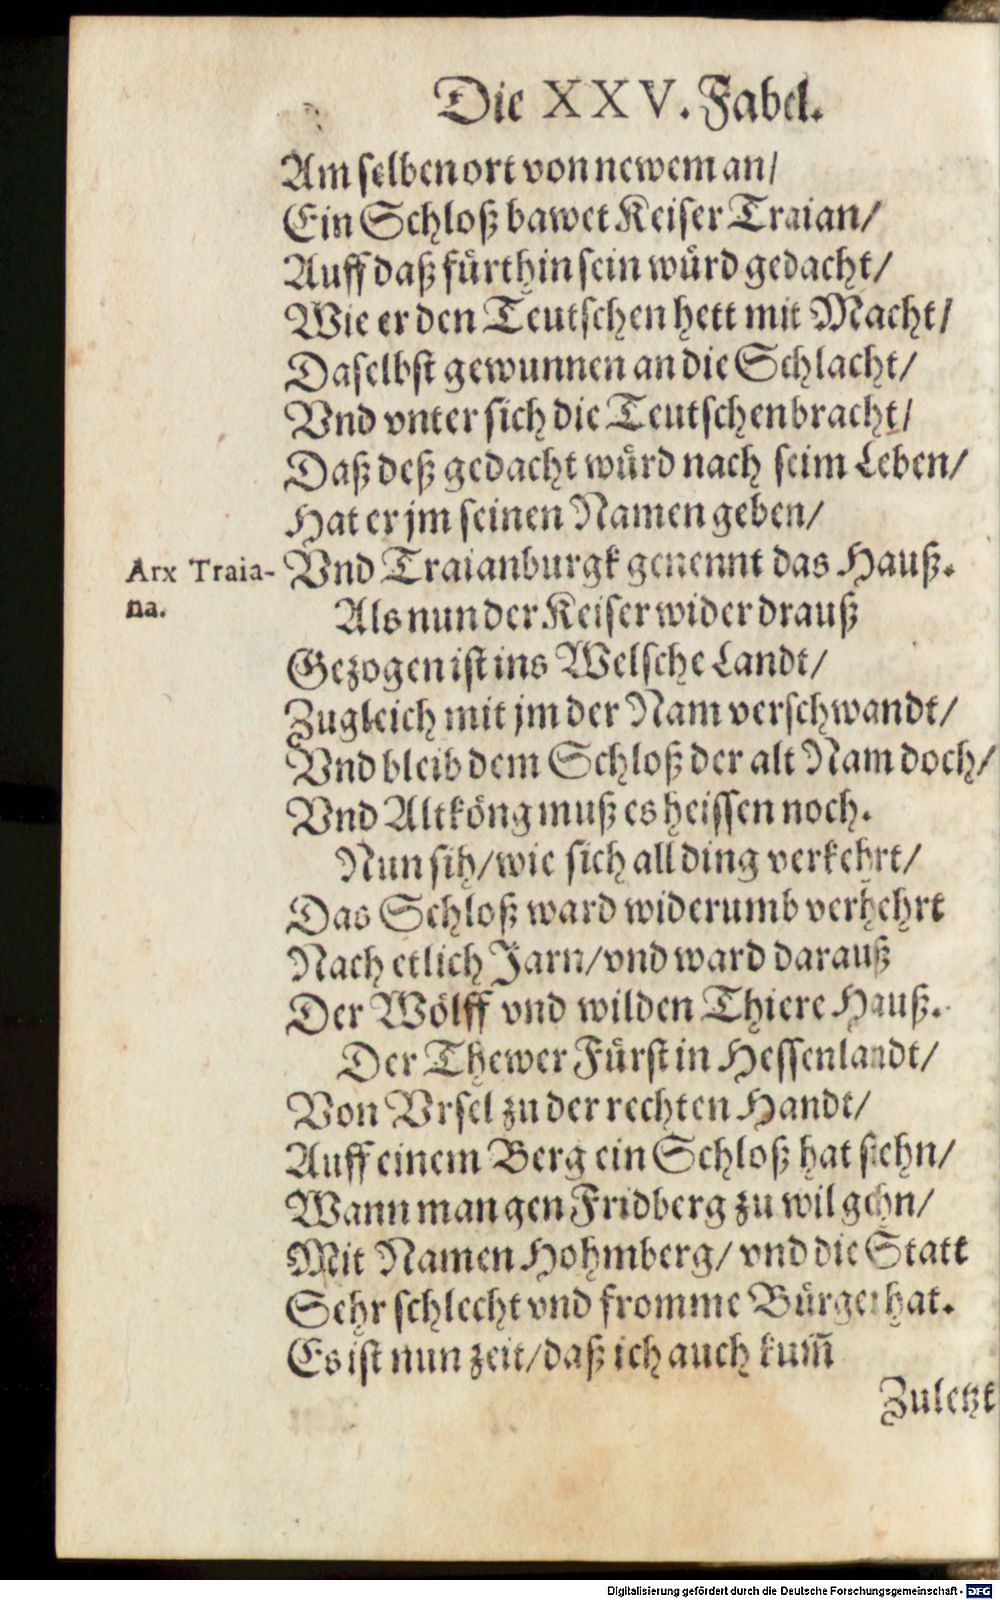 Die XXV. Fabel.
Am selben ort von newem an/
Ein Schloß bawet Keiser Traian/
Auff daß fürthin sein würd gedacht/
Wie er den Teutschen hett mit Macht/
Daselbst gewunnen an die Schlacht/
Vnd vnter sich die Teutschen bracht/
Daß deß gedacht würd nach seim Leben/
Hat er jm seinen Namen geben/
Arx Traia-
na.
Vnd Traianburgk genennt das Hauß.
Als nun der Keiser wider drauß
Gezogen ist ins Welsche Landt/
Zugleich mit jm der Nam verschwandt/
Vnd bleib dem Schloß der alt Nam doch/
Vnd Altköng muß es heissen noch.
Nun sih/ wie sich all ding verkehrt/
Das Schloß ward widerumb verhehrt
Nach etlich Jarn/ vnd ward darauß
Der Wölff vnd wilden Thiere Hauß.
Der Thewer Fürst in Hessenlandt/
Von Vrsel zu der rechten Handt/
Auff einem Berg ein Schloß hat stehn/
Wann man gen Fridberg zu wil gehn/
Mit Namen Hohmberg/ vnd die Statt
Sehr schlecht vnd fromme Bürger hat.
Es ist nun zeit/ daß ich auch kum̃
Zuletzt
Digitalisierung gefördert durch die Deutsche Forschungsgemeinschaft - DFG